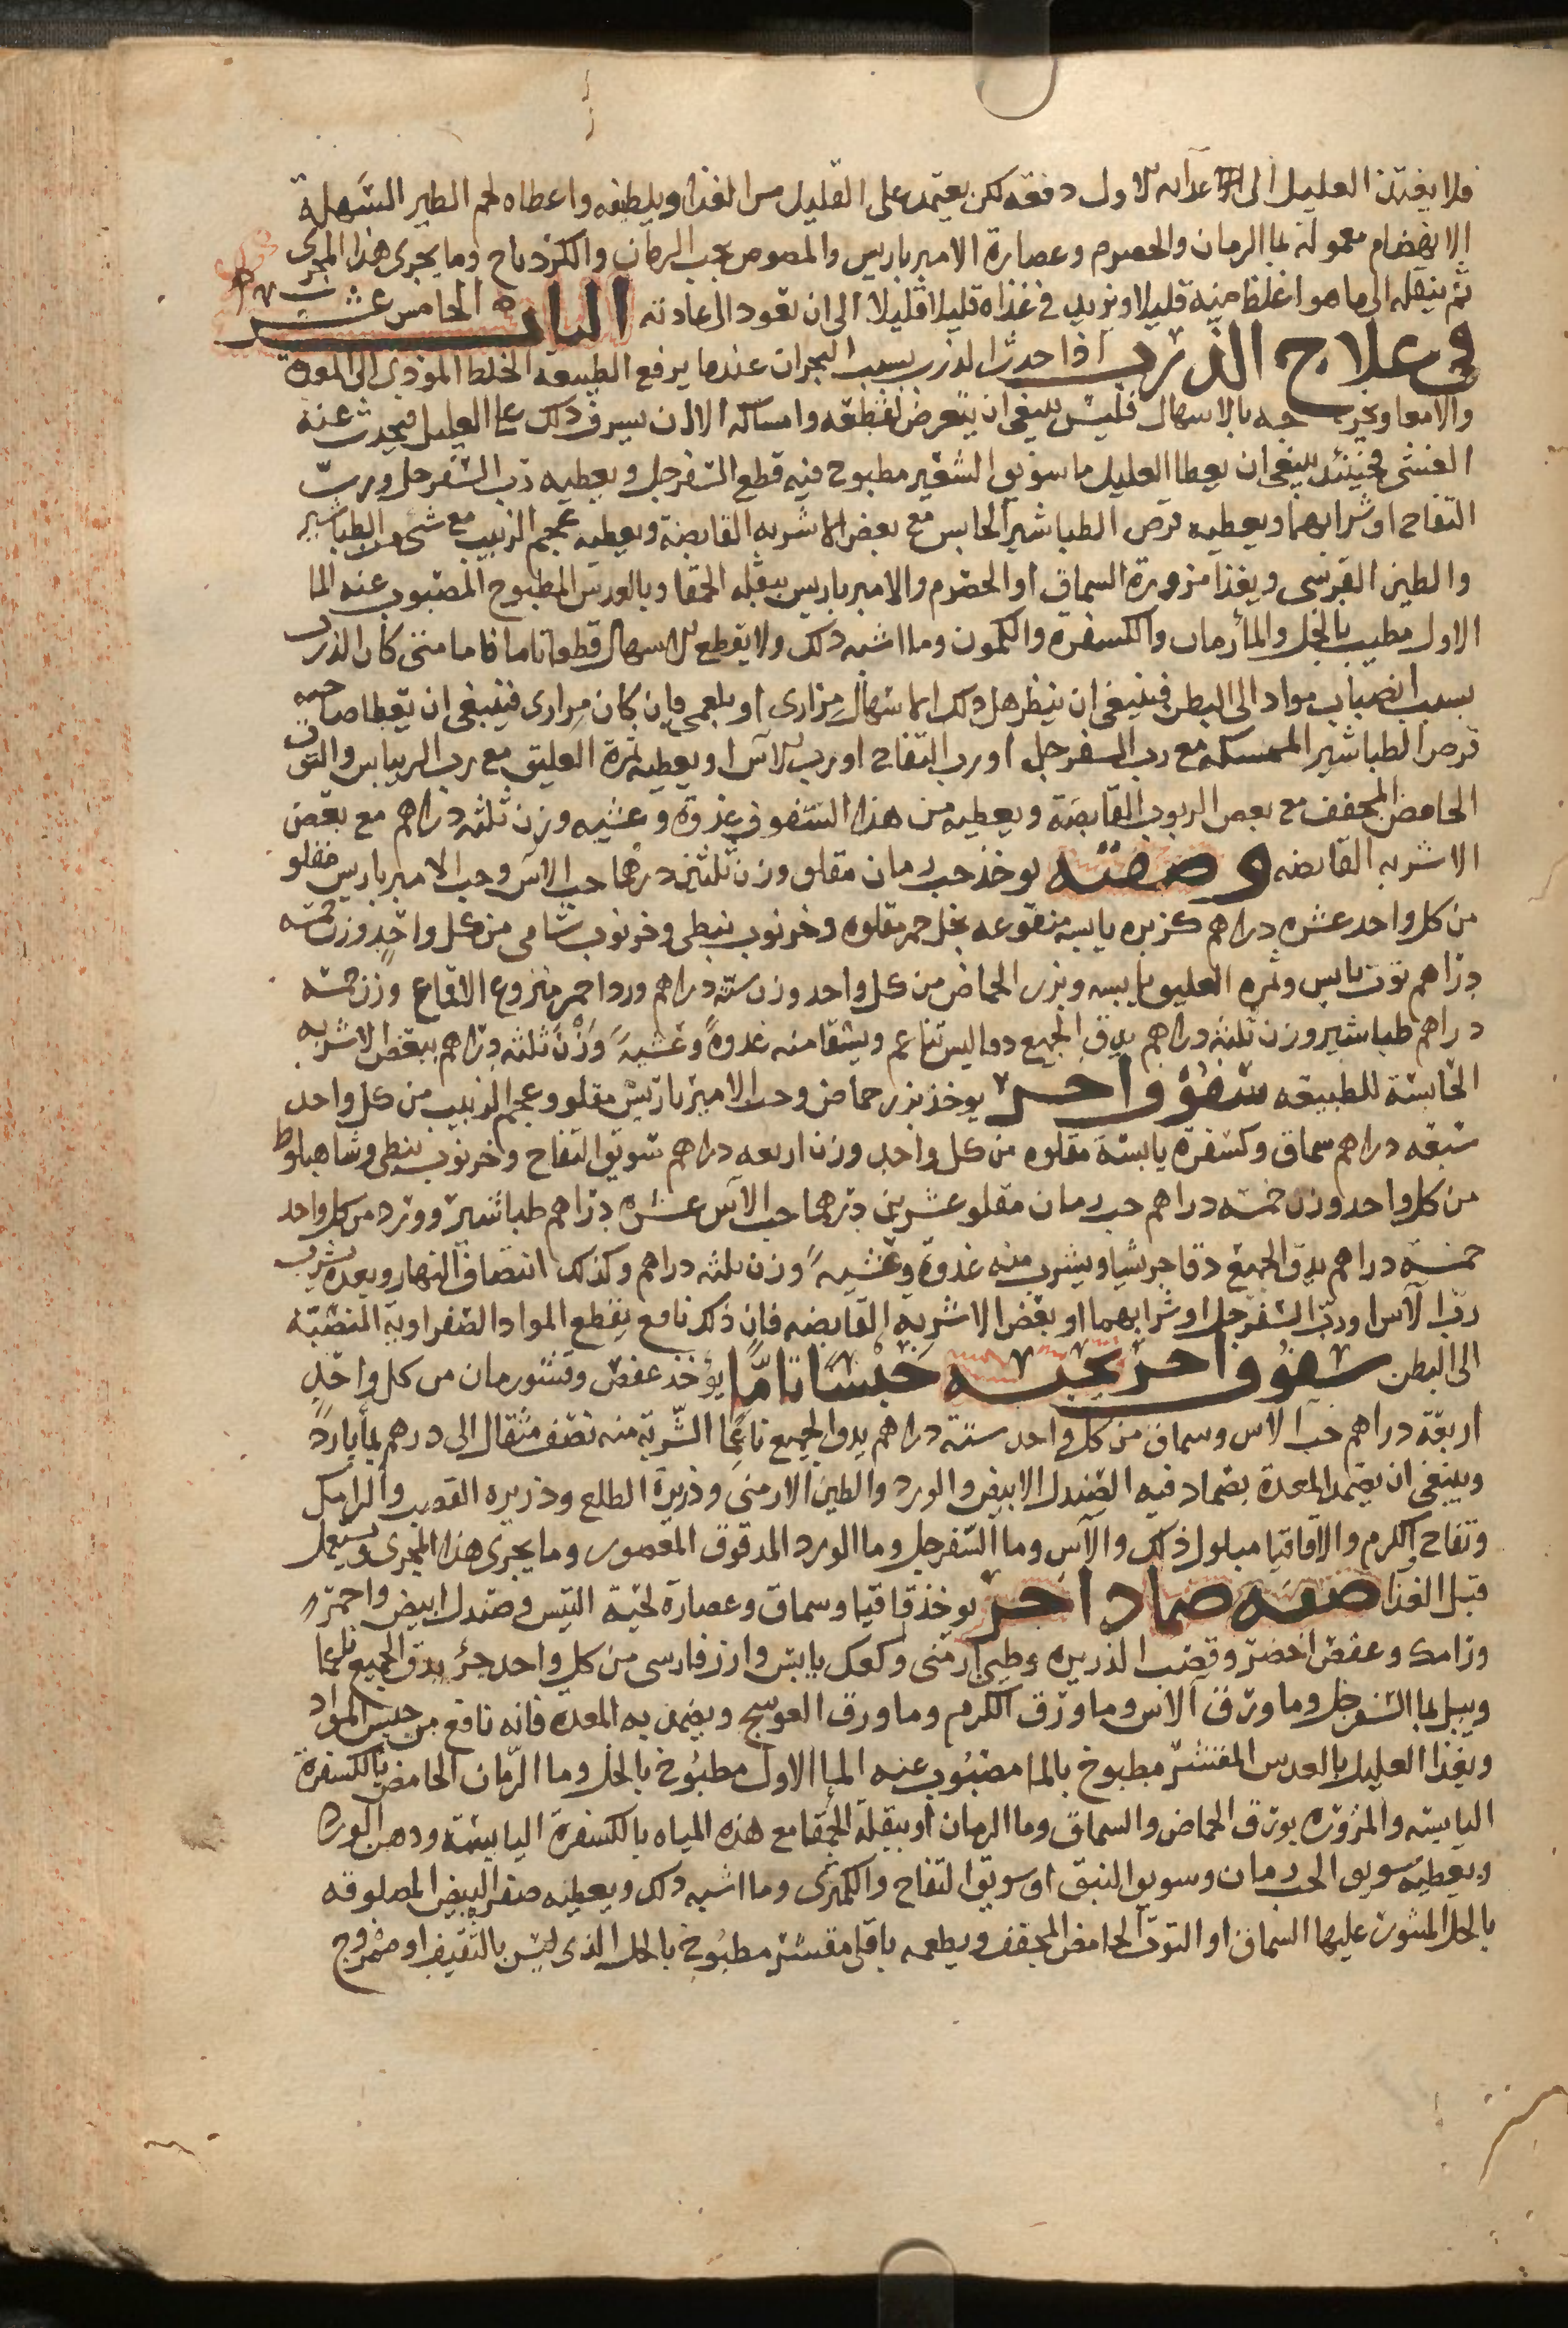 فلا يغذن العليل الى غدآئه الاول دفعه لكن يعتمد على القليل من الغذا ويلطفه واعطاه لحم الطير السهلة
الانهضام معمولة بما الرمان والحصرم وعصارة الامير باريس والمصوص بحب الرمان والكزدباج وما يجرى هذا المجرى
ثم ينقله الى ما هو اغلظ منه قليلا ويزيد فى غذاه قليلا قليلا الى ان تعود الى عادته الباب الخامس عشر
فى علاج الذرب اذا حدث الذرب بسبب البحران عندما يدفع الطبيعة الخلط الموذى الى المعدة
والامعا ويخرجه بالاسهال فليس ينبغى ان يتعرض لقطعه وامساكه الا ان يسرف ذلك على العليل فيحدث عنه
الغشى فحينئذ ينبغى ان يعطا العليل ما سويق الشعير مطبوخ فيه قطع السفرجل ويعطيه رب السفرجل ورب
التفاح او شرابهما ويعطيه قرص الطباشير الحابس مع بعض الاشربه القابضة ويعطيه عجم الزبيب مع شى من الطباشير
والطين القبرسى ويغذا مزورة السماق او الحصرم والامير باريس ببقله الحمقا وبالعدس المطبوخ المصبوب عنه الما
الاول مطيب بالخل والما رمان والكسفرة والكمون وما اشبه ذلك ولا يقطع الاسهال قطعا تاما فاما متى كان الذرب
بسبب انصباب مواد الى البطن فينبغى ان ينظر هل ذلك الاسهال مرارى او بلغمى فان كان مرارى فينبغى ان يعطا صاحبه
قرص الطباشير الممسكه مع رب السفرجل او رب التفاح او رب الآس او يعطيه ثمرة العليق مع رب الريباس والتوت
الحامض المجفف مع بعض الربوب القابضة ويعطيه من هذا السفوف غدوة وعشيه وزن ثلثه دراهم مع بعض
الاشربه القابضه وصفته يوخذ حب رمان مقلو وزن ثلثين درهما حب الآس وحب الامير باريس مقلو
من كل واحد عشره دراهم كزبره يابسه منقوعه بخل خمر مقلوه وخرنوب نبطى وخرنوب شامى من كل واحدٍ وزن خمسه
دراهم توت يابس وثمره العليق يابسه وبزر الحماض من كل واحد وزن سته دراهم ورد احمر منزوع الاقماع وزن خمسه
دراهم طباشير وزن ثلثه دراهم يدق الجميع دقا ليس ناعم ويسقا منه غدوةً وعشيةً وزن ثلثه دراهم ببعض الاشربه
الحابسة للطبيعه سفوف اخر يوخذ بزر حماض وحب الامير باريس مقلو وعجم الزبيب من كل واحد
سبعه دراهم سماق وكسفرة يابسة مقلوه من كل واحد وزن اربعه دراهم سويق التفاح وخرنوب نبطى وشاهبلوط
من كل واحد وزن خمسه دراهم حب رمان مقلو عشرين درهما حب الآس عشره دراهم طباشير وورد من كل واحد
خمسه دراهم يدق الجميع دقا جريشا ويشرب منه غدوة وعشيةً وزن ثلثه دراهم وكذلك انتصاف النهار وبعده يشرب
رب الآس او رب السفرجل او شرابهما او بعض الاشربه القابضه فان ذلك نافع يقطع المواد الصفراوية المنصبّة
الى البطن سفوف اخر يحبسه حبسًا تامًا يؤخذ عفص وقشور رمان من كل واحدٍ
اربعة دراهم حب الاس وسماق من كل واحد ستة دراهم يدق الجميع ناعمًا الشربة منه نصف مثقال الى درهم بما بارد
وينبغى ان يضمد المعدة بضماد فيه الصندل الابيض والورد والطين الارمنى وذريرة الطلع وذريره القصب والرامك
وتفاح الكرم والاقاقيا مبلول ذلك والآس وما السفرجل وما الورد المدقوق المعصور وما يجرى هذا المجرى ويستعمل
قبل الغذا صفه ضماد اخر يوخذ قاقيا وسماق وعصارة لحية التيس وصندل ابيض واحمر
ورامك وعفص اخضر وقصب الذريره وطين ارمنى وكعك يابس وارز فارسى من كل واحد جزؤ يدق الجميع ناعما
ويبل بما السفرجل وما ورق الآس وما ورق الكرم وما ورق العوسج ويضمد به المعدة فانه نافع من حبس المواد
ويغذا العليل بالعدس المقشّر مطبوخ بالما مصبوب عنه الما الاول مطبوخ بالخل وما الرّمان الحامض بالكسفرة
اليابسه والمزوّره بورق الحماض والسماق وما الرمان او ببقلة الحمقا مع هذه المياه بالكسفرة اليابسة ودهن الورد
ويعطيه سويق الحب رمان وسويق النبق او سويق التفاح والكمثرى وما اشبه ذلك ويعطيه صفر البيض المصلوقه
بالخل المنثور عليها السماق او التوت الحامض المجفف ويطعمه باقلى مقشر مطبوخ بالخل الذى ليس بالثقيف او ممزوج